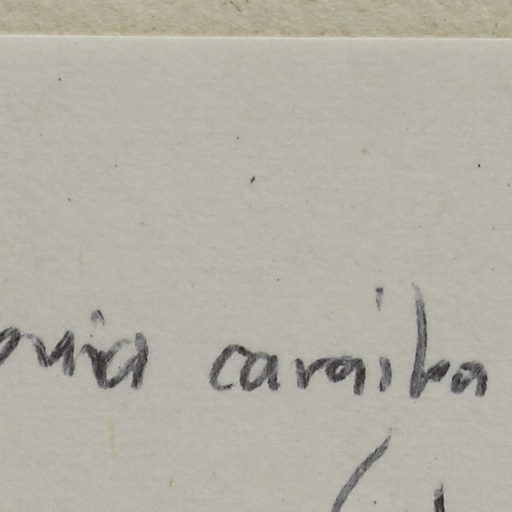 buia caraiba